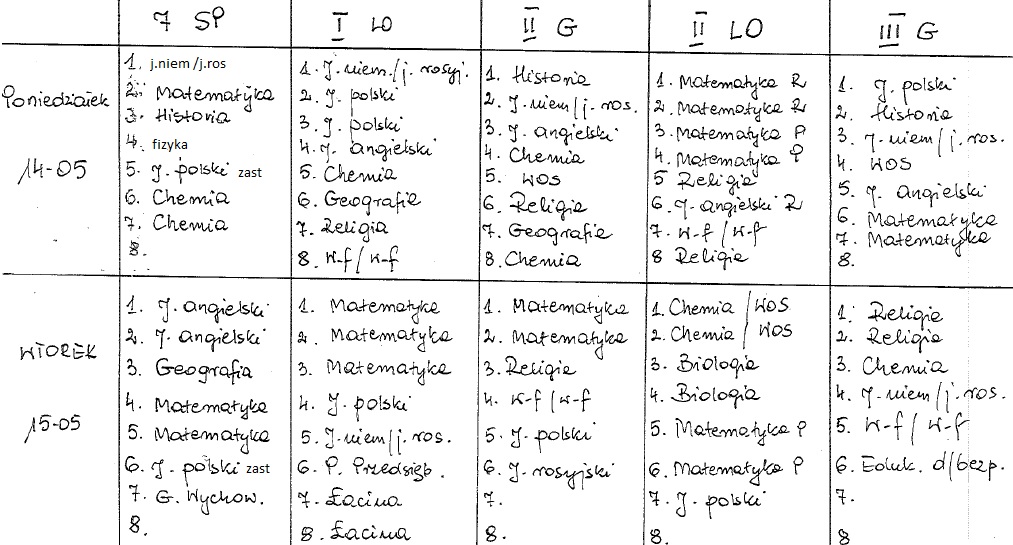 7 SP
I LO
II G
II LO
III G
Poniedziałek
14-05
1. j.niem /j.ros
2. Matematyka
3. Historia
4. fizyka
5. J. polski zast
6. Chemia
7. Chemia
8.
1. J. niem./j. rosyj.
2. J. polski
3. J. polski
4. J. angielski
5. Chemia
6. Geografia
7. Religia
8. W-f / W-f
1. Historia
2. J. niem / j. ros.
3. J. angielski
4. Chemia
5. WOS
6. Religia
7. Geografia
8. Chemia
1. Matematyka R
2. Matematyka R
3. Matematyka P
4. Matematyka P
5 Religia
6. J. angielski R
7. W-f / W-f
8 Religia
1. J. polski
2. Historia
3. J. niem / j. ros.
4. WOS
5. J. angielski
6. Matematyka
7. Matematyka
8.
WTOREK
15-05
1. J. angielski
2. J. angielski
3. Geografia
4. Matematyka
5. Matematyka
6. J. polski zast
7. G. Wychow.
8.
1. Matematyka
2. Matematyka
3. Matematyka
4. J. polski
5. J. niem / j. ros.
6. P. Przedsięb.
7. Łacina
8. Łacina
1. Matematyka
2. Matematyka
3. Religia
4. W-f / W-f
5. J. polski
6. J. rosyjski
7.
8.
1. Chemia / WOS
2. Chemia / WOS
3. Biologia
4. Biologia
5. Matematyka P
6. Matematyka P
7. J. polski
8
1. Religia
2. Religia
3. Chemia
4. J. niem / j. ros.
5. W-f / W-f
6. Eduk. d/bezp.
7.
8